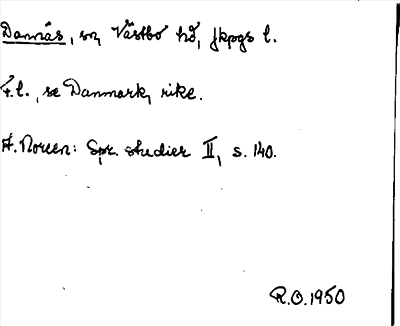 Dannäs, sn, Västbo hd, Jkpgs l.
F.l., se Danmark, rike.
A. Noreen: Spr. studier II, s. 140.
R.O. 1950